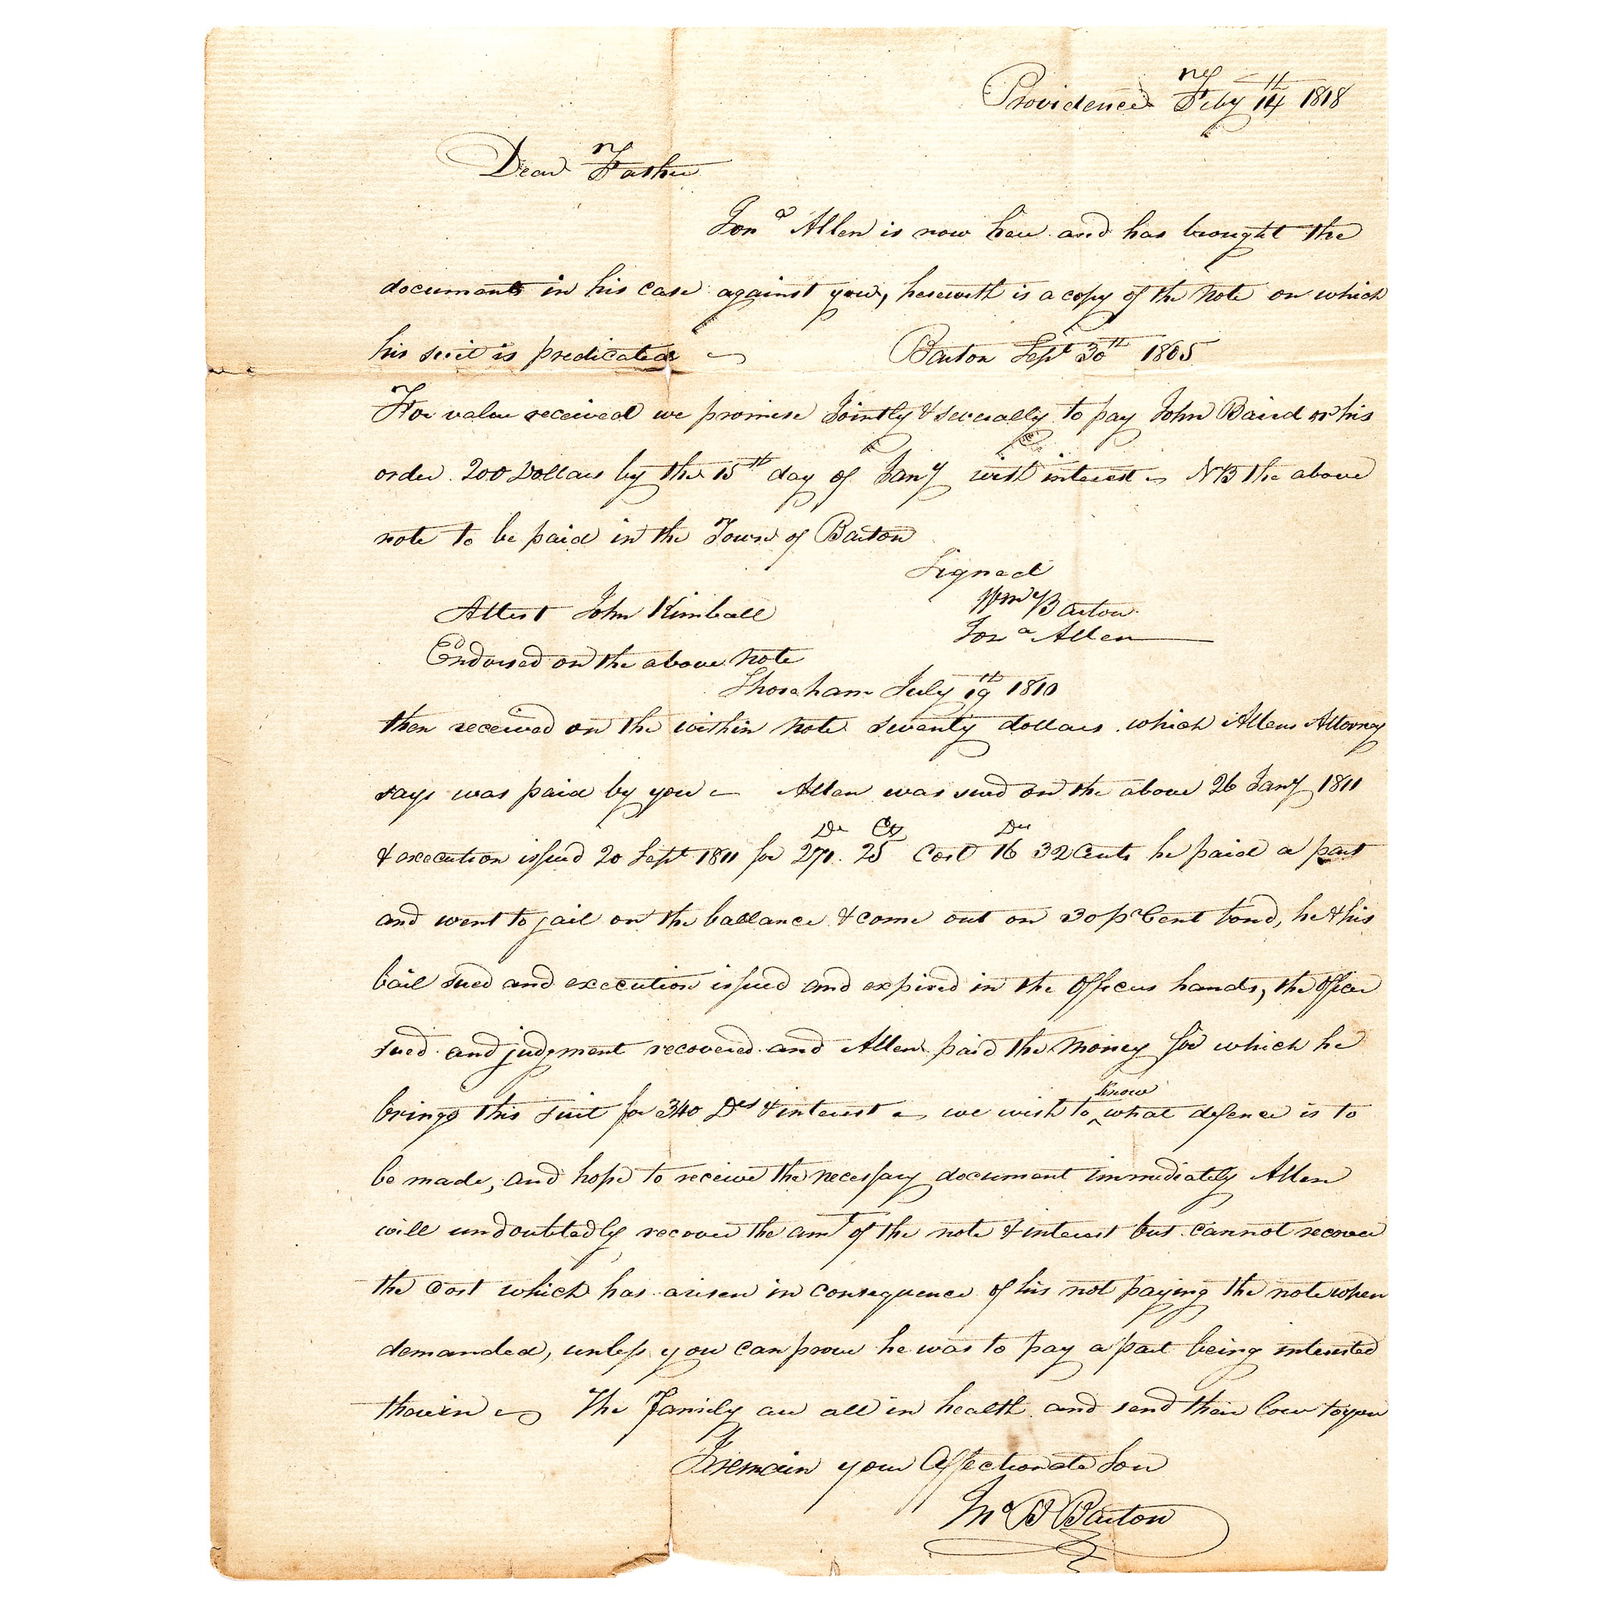 Providence Feby 14th 1818
Dear Father
Jona Allen is now here and has brought the
documents in his case against you, herewith is a copy of the note on which
his suit is predicated — Barton Sept 30th 1805
For value received we promise Jointly & severally to pay John Baird or his
order 200 Dollars by the 15th day of Jany with interest — NB the above
note to be paid in the Town of Barton
Signed
Attest John Kimball Wm Barton
Jona Allen
Endorsed on the above note
Shoreham July 19th 1810
then received on the within note seventy dollars which Allens Attorney
says was paid by you — Allen was sued on the above 26 Jany 1811
& execution issued 20 Sept 1811 for 271. 25 Cost 16 32 Cents he paid a part
and went to jail on the ballance & come out on 30 pr Cent bond, he & his
bail sued and execution issued and expired in the Officers hands, the Officer
sued and judgment recovered and Allen paid the Money for which he
brings this suit for 340 Dls & interest — we wish to know what defence is to
be made, and hope to receive the necessary document immediately Allen
will undoubtedly recover the amt of the note & interest but cannot recover
the Cost which has arisen in consequence of his not paying the note when
demanded, unless you can prove he was to pay a part being interested
therein — The Family are all in health and send their love to you
I remain your Affectionate Son
Jno B Barton